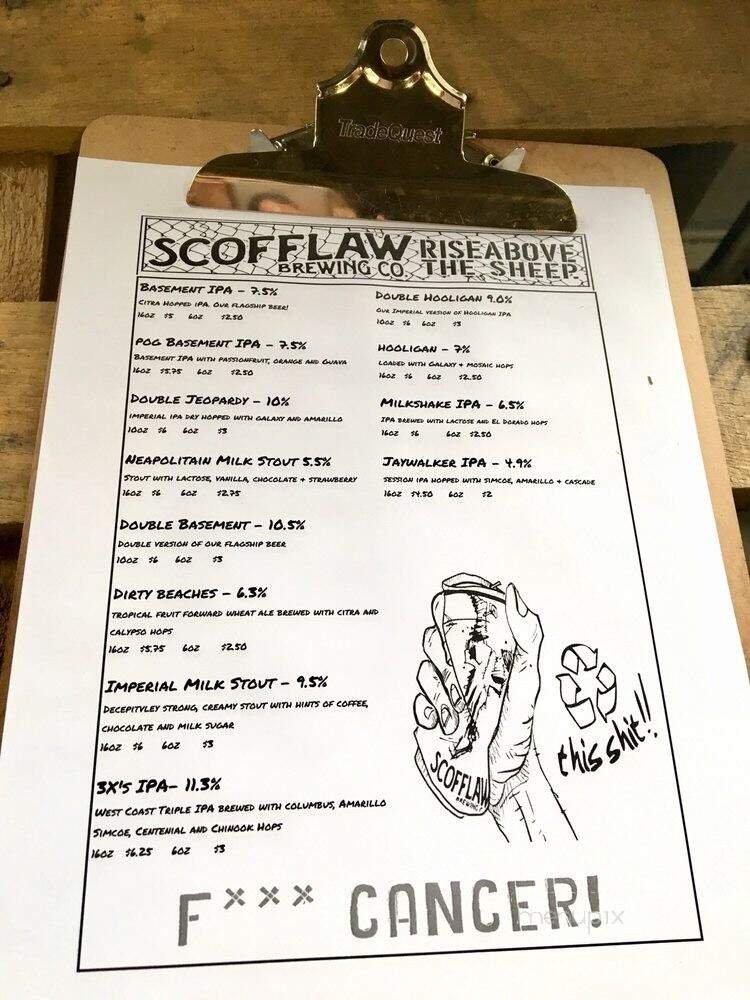 TradeQuest
SCOFFLAW
BREWING CO.
RISE ABOVE
THE SHEEP
BASEMENT IPA – 7.5%
CITRA HOPPED IPA. OUR FLAGSHIP BEER!
16OZ $5 6OZ $2.50
POG BASEMENT IPA – 7.5%
BASEMENT IPA WITH PASSIONFRUIT, ORANGE AND GUAVA
16OZ $5.75 6OZ $2.50
DOUBLE JEOPARDY – 10%
IMPERIAL IPA DRY HOPPED WITH GALAXY AND AMARILLO
10OZ $6 6OZ $3
NEAPOLITAIN MILK STOUT 5.5%
STOUT WITH LACTOSE, VANILLA, CHOCOLATE + STRAWBERRY
16OZ $6 6OZ $2.75
DOUBLE BASEMENT – 10.5%
DOUBLE VERSION OF OUR FLAGSHIP BEER
10OZ $6 6OZ $3
DIRTY BEACHES – 6.3%
TROPICAL FRUIT FORWARD WHEAT ALE BREWED WITH CITRA AND
CALYPSO HOPS
16OZ $5.75 6OZ $2.50
IMPERIAL MILK STOUT – 9.5%
DECEPITVLEY STRONG, CREAMY STOUT WITH HINTS OF COFFEE,
CHOCOLATE AND MILK SUGAR
16OZ $6 6OZ $3
3X'S IPA– 11.3%
WEST COAST TRIPLE IPA BREWED WITH COLUMBUS, AMARILLO
SIMCOE, CENTENIAL AND CHINOOK HOPS
16OZ $6.25 6OZ $3
DOUBLE HOOLIGAN 9.0%
OUR IMPERIAL VERSION OF HOOLIGAN IPA
10OZ $6 6OZ $3
HOOLIGAN – 7%
LOADED WITH GALAXY + MOSAIC HOPS
16OZ $6 6OZ $2.50
MILKSHAKE IPA – 6.5%
IPA BREWED WITH LACTOSE AND EL DORADO HOPS
16OZ $6 6OZ $2.50
JAYWALKER IPA – 4.9%
SESSION IPA HOPPED WITH SIMCOE, AMARILLO + CASCADE
16OZ $4.50 6OZ $2
SCOFFLAW
BREWING
this shit!!
F*** CANCER!
menupix